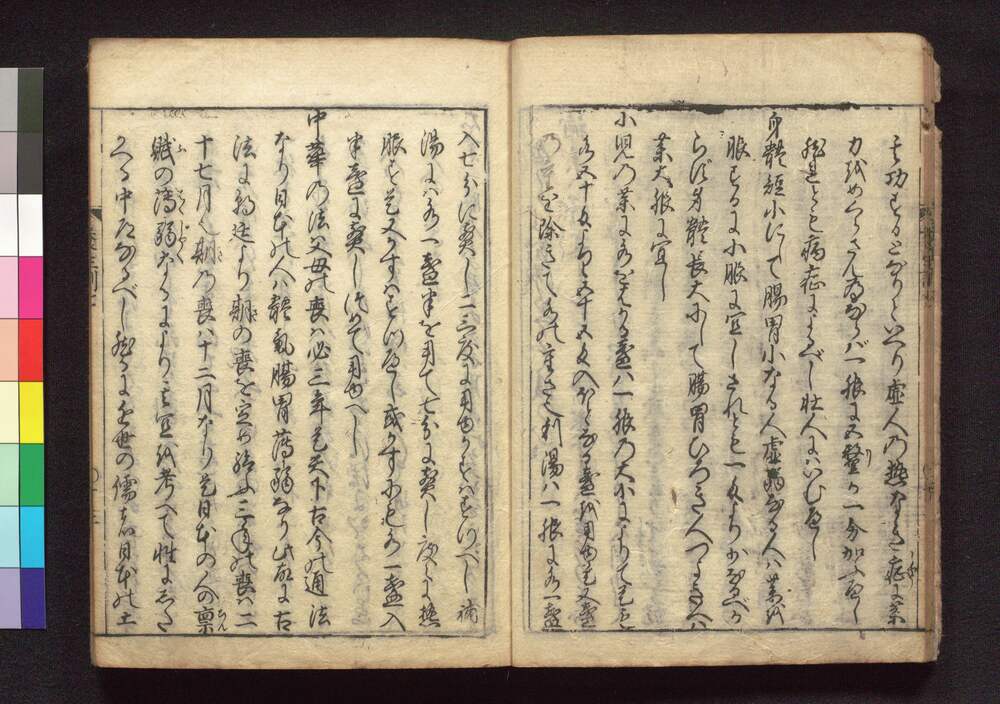 其功するとなりといへり虚人の熱なき症に薬
力をめくらさん為ならば一服に五釐か一分加ふべし
然れとも病症によるべし壮人にはいむべし
身體短小にして腸胃小なる人虚弱なる人ハ薬を
服するに小服に宜しされとも一匁より小なるべか
らず身體長大にして腸胃ひろき人つよき人ハ
薬大服に宜し
小児の薬に水をはかる盞ハ一服の大小によりて是も
五十匁より五十五匁入ほとなる盞を用ゆ是又盞
の重を除きて水の重さ也利湯ハ一服に水一盞
入七分に煎し二三度に用ゆかすはすつべし補
湯にハ水一盞半を用て七分に煎し度々熱
服す是又かすはすつべし或かすにも水一盞入
半盞に煎しつめて用ゆへし
中華の法父母の喪ハ必三年是天下古今の通法
なり日本の人ハ體氣腸胃薄弱なり此故に古
法に朝廷より期の喪を定め給ふ三年の喪ハ二
十七月也期の喪ハ十二月なり是日本の人の禀
賦の薄弱なるにより其宜を考へて性にした
へる中道なるべし然るに近世の儒者日本の土